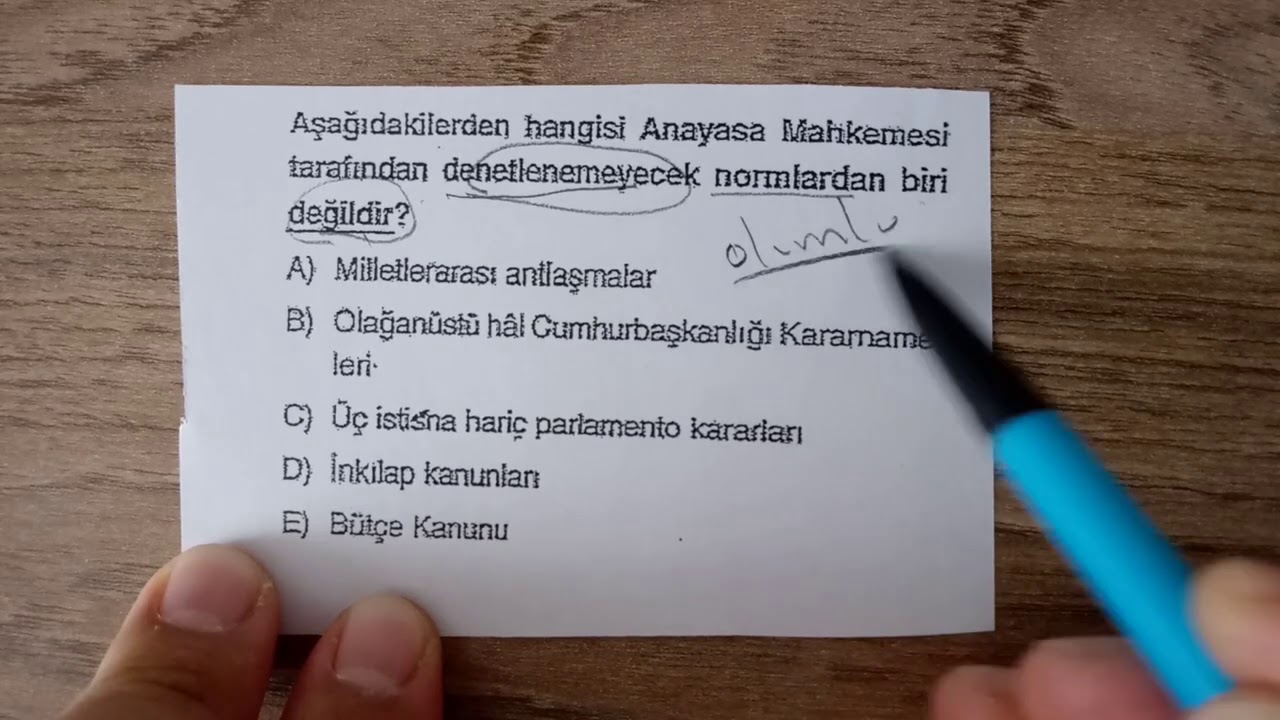 Aşağıdakilerden hangisi Anayasa Mahkemesi
tarafından denetlenemeyecek normlardan biri
değildir?
olumlu
A) Milletlerarası antlaşmalar
B) Olağanüstü hâl Cumhurbaşkanlığı Kararname
leri
C) Üç istisna hariç parlamento kararları
D) İnkılap kanunları
E) Bütçe Kanunu